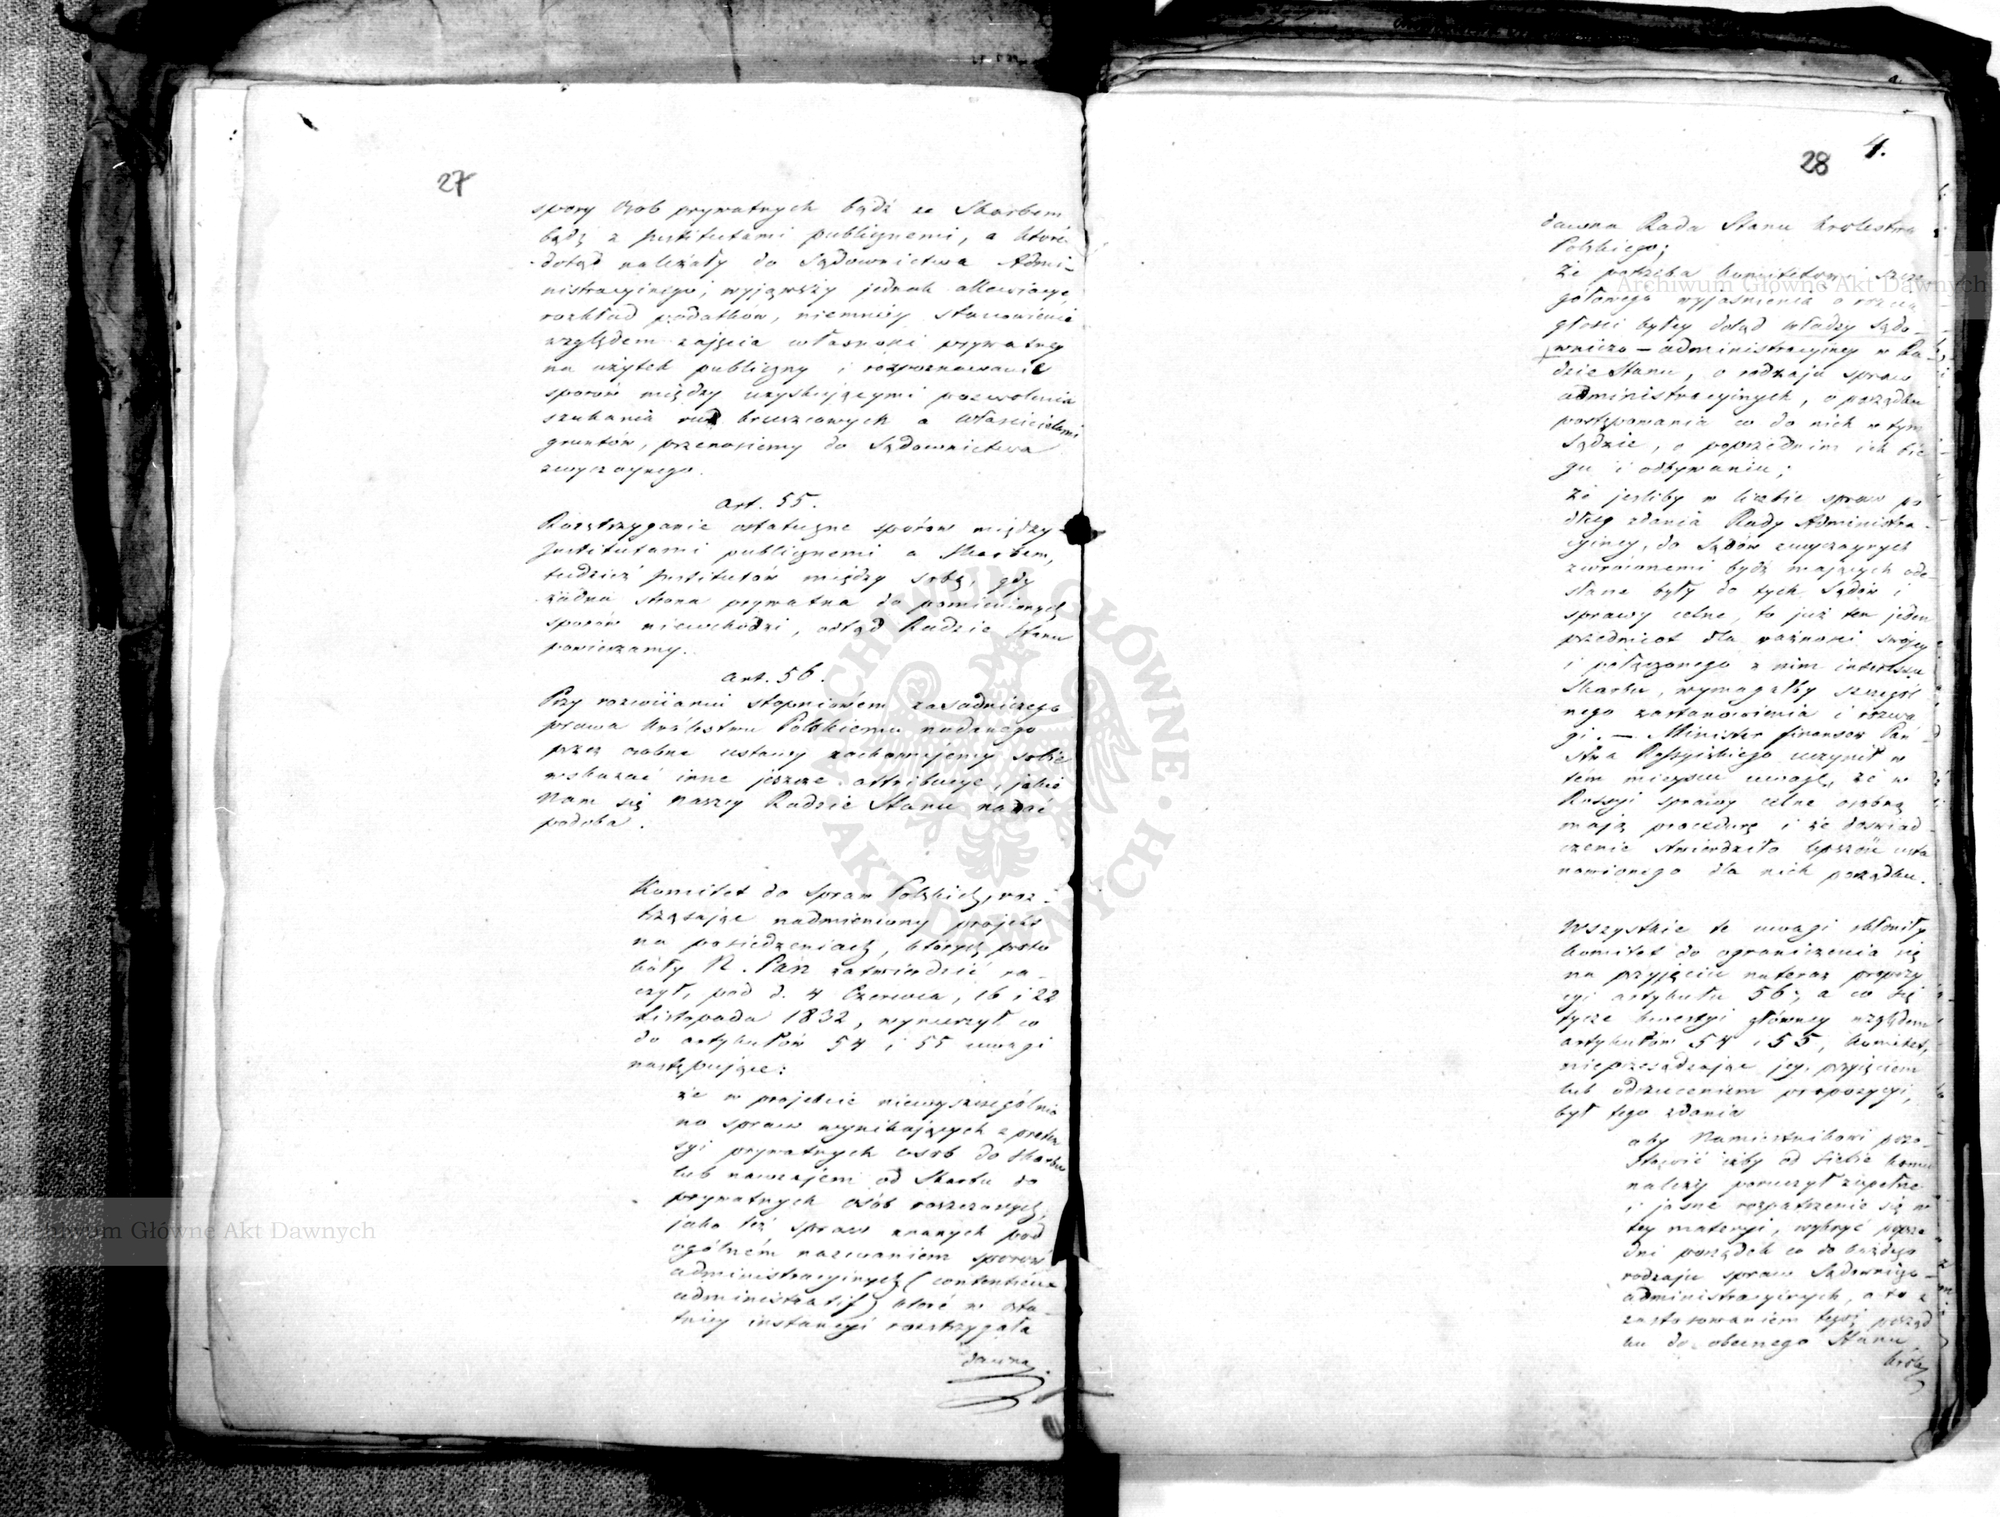 27
spory osób prywatnych bądź ze Skarbem
bądź z Institutami publicznemi, a które
dotąd należały do Sądownictwa Admi-
nistracyinego, wyjąwszy jednak
rozkład podatków, niemniéy stanowienie
względem zajęcia własności prywatnéy
na użytek publiczny i rozpoznawanie
sporów między uzyskującymi pozwolenia
szukania rud kruszcowych a właścicielami
gruntów, przenosiemy do Sądownictwa
zwyczaynego.
Art. 55.
Rozstrzyganie ostateczne sporów między
Institutami publicznemi a Skarbem,
tudzież Institutów między sobą, gdy
żadna strona prywatna do pomienionych
sporów niewchodzi, odtąd Radzie Stanu
powierzamy.
Art. 56.
Przy rozwiianiu stopniowem zasadniczego
prawa Królestwu Polskiemu nadanego
przez osobne ustawy zachowujemy sobie
wskazać inne jeszcze attribucye, jakie
Nam się Naszey Radzie Stanu nadać
podoba.
Komitet do spraw Polskich, roz-
trząsając nadmieniony projekt
na posiedzeniach, których proto
kóły N. Pan zatwierdzić ra-
czył, pod d. 4 Czerwca, 16 i 22
Listopada 1832, wynurzył co
do artykułów 54 i 55 uwagi
następujące:
że w projekcie niewyszczególnio
no spraw wynikających z preten
syi prywatnych osób do Skarbu
lub nawzajem od Skarbu do
prywatnych osób roszczonych,
jako też spraw znanych pod
ogólném nazwaniem sporów
administracyinych (contentieux
administratif) które w osta-
tniey instancyi rozstrzygała
dawna
28 4.
dawna Rada Stanu Królestwa
Polskiego;
że potrzeba Komitetowi szcze
gółowego wyjaśnienia o rozcią
głości byłey dotąd władzy Sądo-
wniczo-administracyiney w Ra
dzie Stanu, o rodzaju spraw
administracyinych, o porządku
postępowania co do nich w tym
Sądzie, o poprzednim ich bie
gu i odbywaniu;
że jeśliby w liczbie spraw po
dług zdania Rady Administra-
cyiney, do Sądów zwyczaynych
zwróconemi bydź mających ode-
słane były do tych Sądów i
sprawy celne, to już ten jeden
przedmiot dla ważności swojey
i połączonego z nim interessu
Skarbu, wymagałby szczegól
nego zastanowienia i rozwa
gi. — Minister finansów Pań-
stwa Rossyiskiego uczynił w
tém mieyscu uwagę, że w
Rossyi sprawy celne osobną
mają procedurę i że doświad-
czenie stwierdziło lepszość usta
nowionego dla nich porządku.
Wszystkie te uwagi skłoniły
Komitet do ograniczenia się
na przyjęciu nateraz propozy
cyi artykułu 56; a co się
tycze kwestyi główney względem
artykułów 54 i 55, Komitet,
nieprzesądzając jey przyjęciem
lub odrzuceniem propozycyi,
był tego zdania
aby Namiestnikowi pozo-
stawić iżby od siebie komu
należy poruczył zupełne
i jasne rozpatrzenie się w
tey materyi, wykryć poprze
dni porządek co do każdego
rodzaju spraw Sądowniczo-
administracyinych, a to z
zastosowaniem tegoż porząd
ku do obecnego Stanu
Króle
Archiwum Główne Akt Dawnych
Archiwum Główne Akt Dawnych
ARCHIWUM GŁÓWNE AKT DAWNYCH